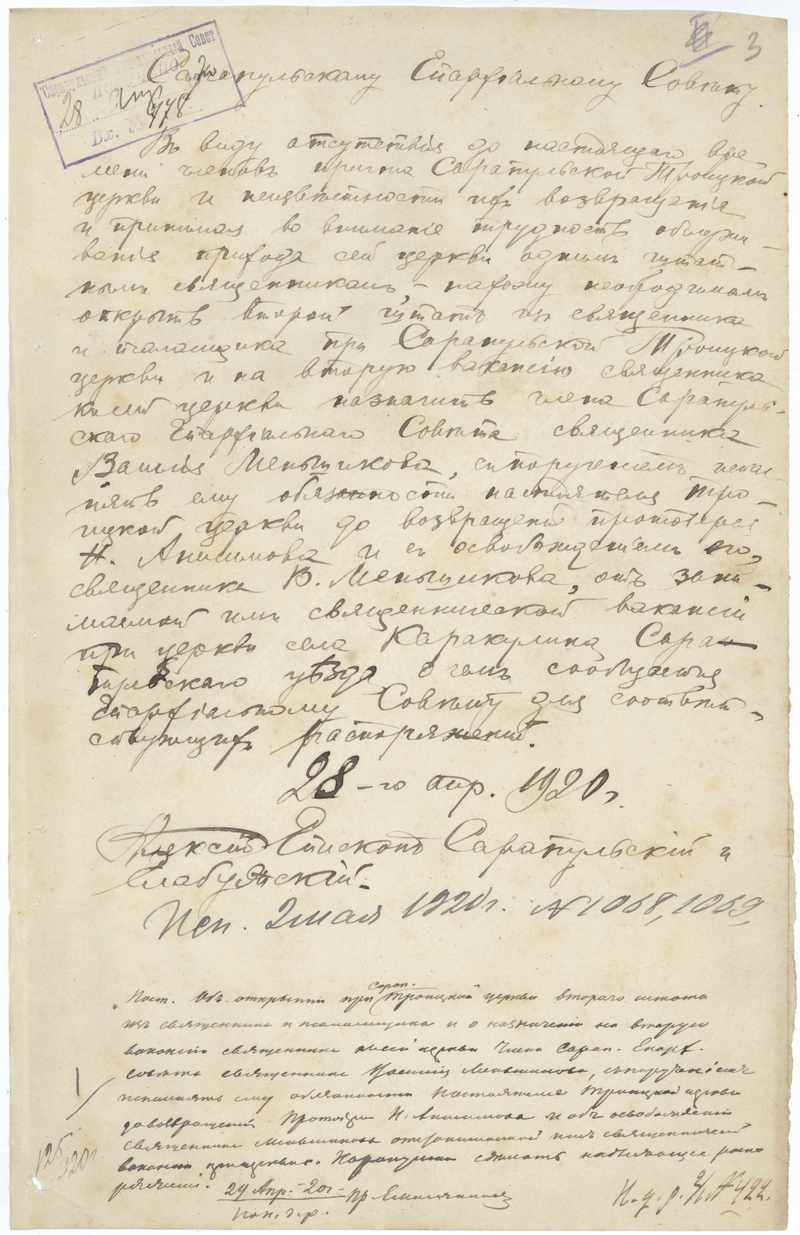 3
Сарапульскому Епархіальному Совѣту.
28 Апр
Вх. № 478
Въ виду отсутствія до настоящаго вре-
мени членовъ причта Сарапульской Троицкой
церкви и неизвѣстности ихъ возвращенія
и принимая во вниманіе трудность обслужи-
ванія прихода сей церкви однимъ штат-
нымъ священникомъ – нахожу необходимымъ
открыть второй штатъ изъ священника
и псаломщика при Сарапульской Троицкой
церкви и на вторую вакансію священника
къ сей церкви назначить члена Сарапуль-
скаго Епархіальнаго Совѣта священника
Василія Меньшикова, съ порученіемъ испол-
нять ему обязанности настоятеля Тро-
ицкой церкви до возвращенія протоіерея
Н. Анисимова и съ освобожденіемъ его,
священника В. Меньшикова, отъ зани-
маемой имъ священнической вакансіи
при церкви села Каракулина Сара-
пульскаго уѣзда о чемъ сообщается
Епархіальному Совѣту для соотвѣт-
ствующихъ распоряженій.
28-го апр. 1920 г.
Алексій Епископъ Сарапульскій и
Елабужскій.
Исп. 2 мая 1920 г. № 1068, 1069,
Пост. Объ открытіи при Сарап. Троицкой церкви второго штата
изъ священника и псаломщика и о назначеніи на вторую
вакансію священника къ сей церкви Члена Сарап. Епарх.
Совѣта священника Василія Меньшикова, съ порученіемъ
исполнять ему обязанности настоятеля Троицкой церкви
до возвращенія Протоіерея Н. Анисимова и объ освобожденіи
священника Меньшикова отъ занимаемой имъ священнической
вакансіи при церкви с. Каракулина сдѣлать надлежащее распо
ряженіе.
29 Апр. – 20 г.